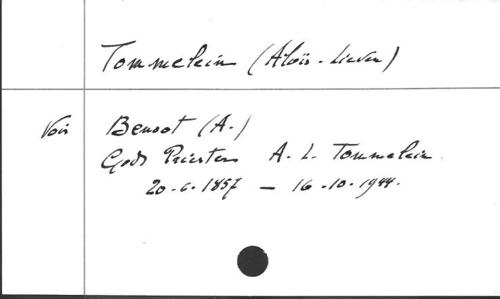 Tommelein (Aloïs-Lieven)
Voir Bensot (A.)
Gods Priester A. L. Tommelein.
20-6-1857 — 16-10-1944.